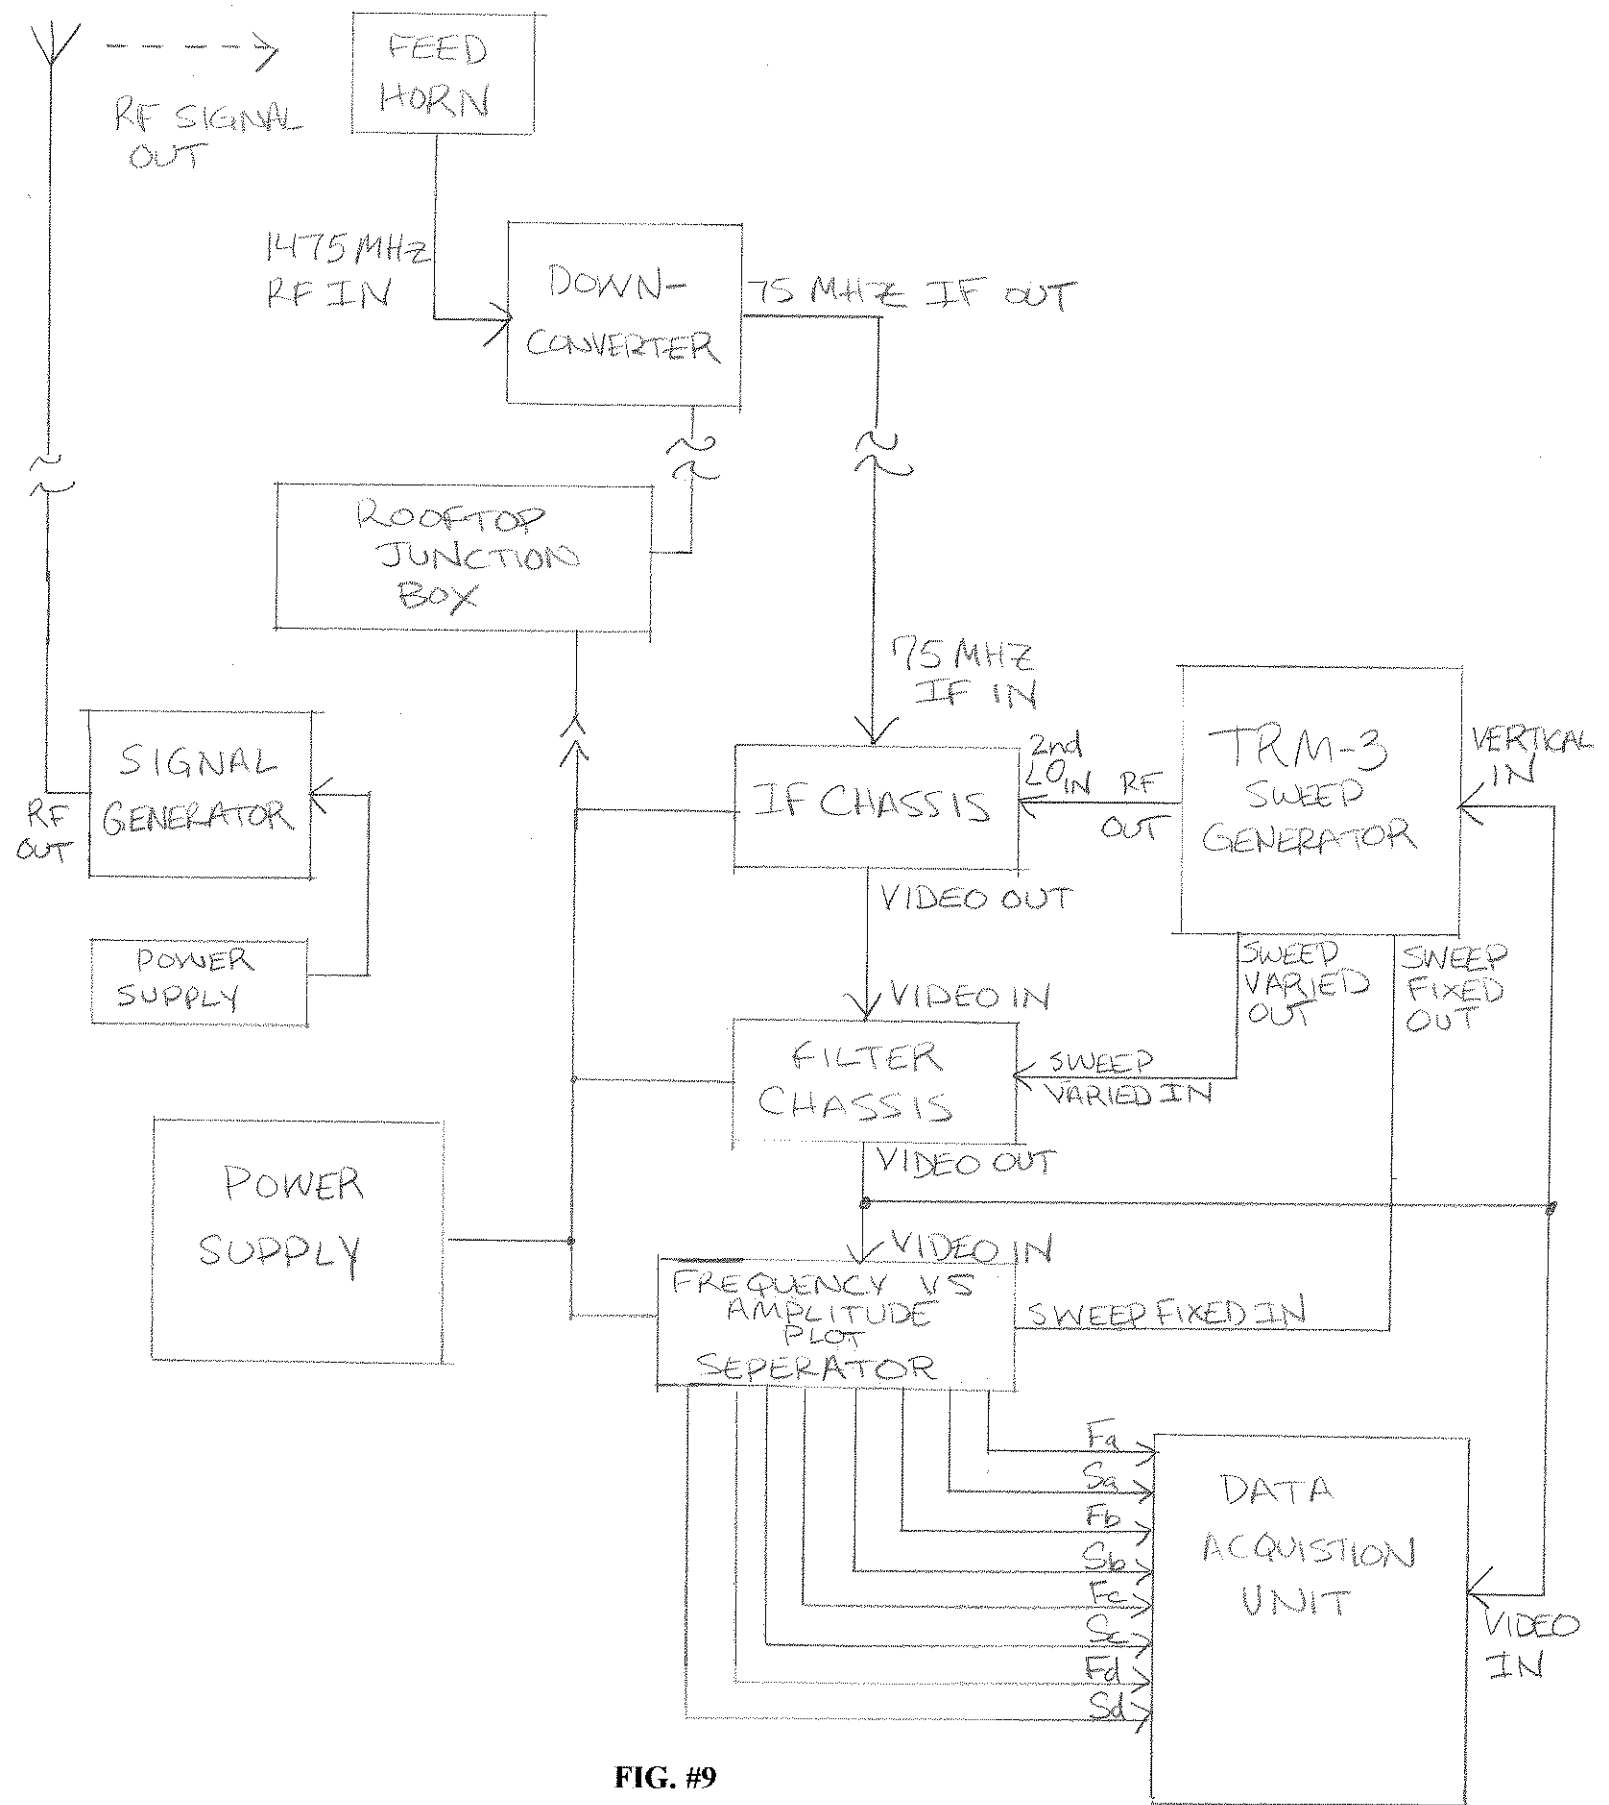 FEED
HORN
RF SIGNAL
OUT
1475 MHz
RF IN
DOWN-
CONVERTER
75 MHZ IF OUT
ROOFTOP
JUNCTION
BOX
75 MHZ
IF IN
SIGNAL
GENERATOR
RF
OUT
POWER
SUPPLY
2nd
LO IN
IF CHASSIS
RF
OUT
TRM-3
SWEEP
GENERATOR
VERTICAL
IN
VIDEO OUT
SWEEP
VARIED
OUT
SWEEP
FIXED
OUT
VIDEO IN
FILTER
CHASSIS
SWEEP
VARIED IN
VIDEO OUT
POWER
SUPPLY
VIDEO IN
FREQUENCY VS
AMPLITUDE
PLOT
SEPERATOR
SWEEP FIXED IN
Fa
Sa
Fb
Sb
Fc
Sc
Fd
Sd
DATA
ACQUISTION
UNIT
VIDEO
IN
FIG. #9